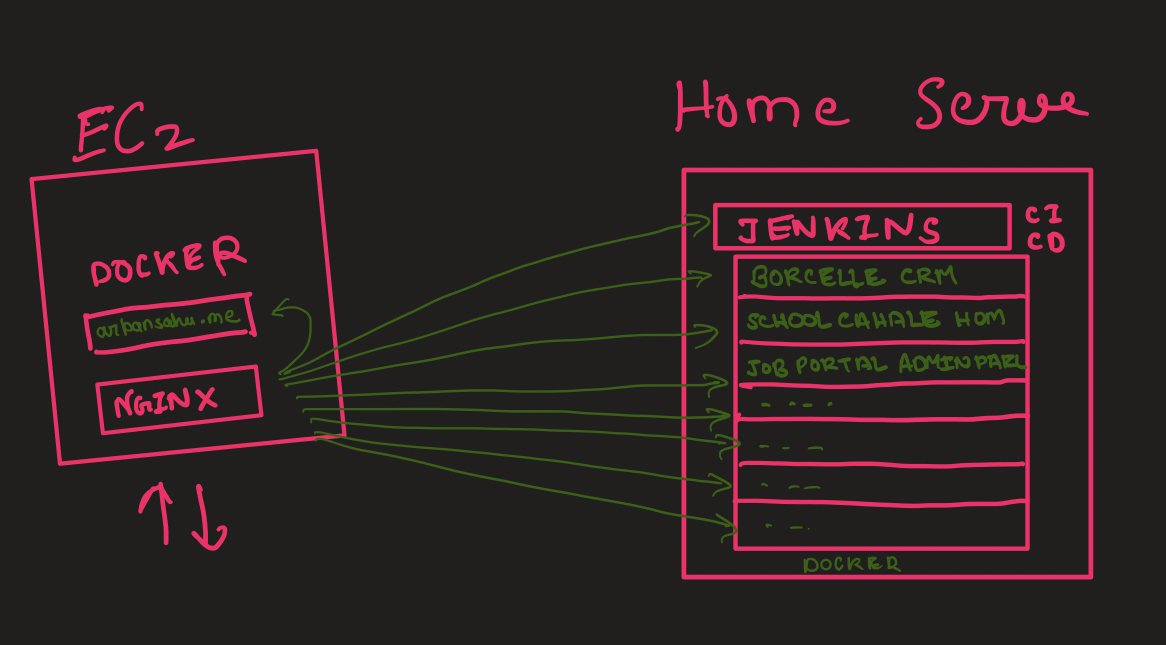 EC2
DOCKER
arpansahu.me
NGINX
Home Serve
JENKINS
CI
CD
BORCELLE CRM
SCHOOL CAHALE HOM
JOB PORTAL ADMIN PARL
DOCKER